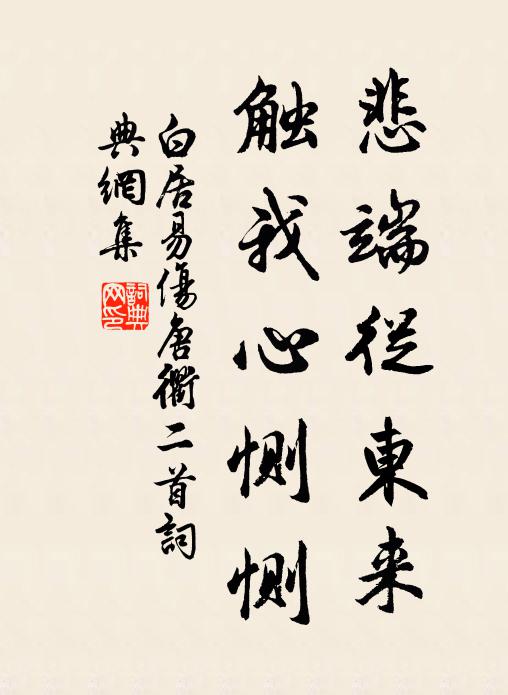 悲端從東来
觸我心惻惻
白居易傷唐衢二首詞
典網集
詞典网印